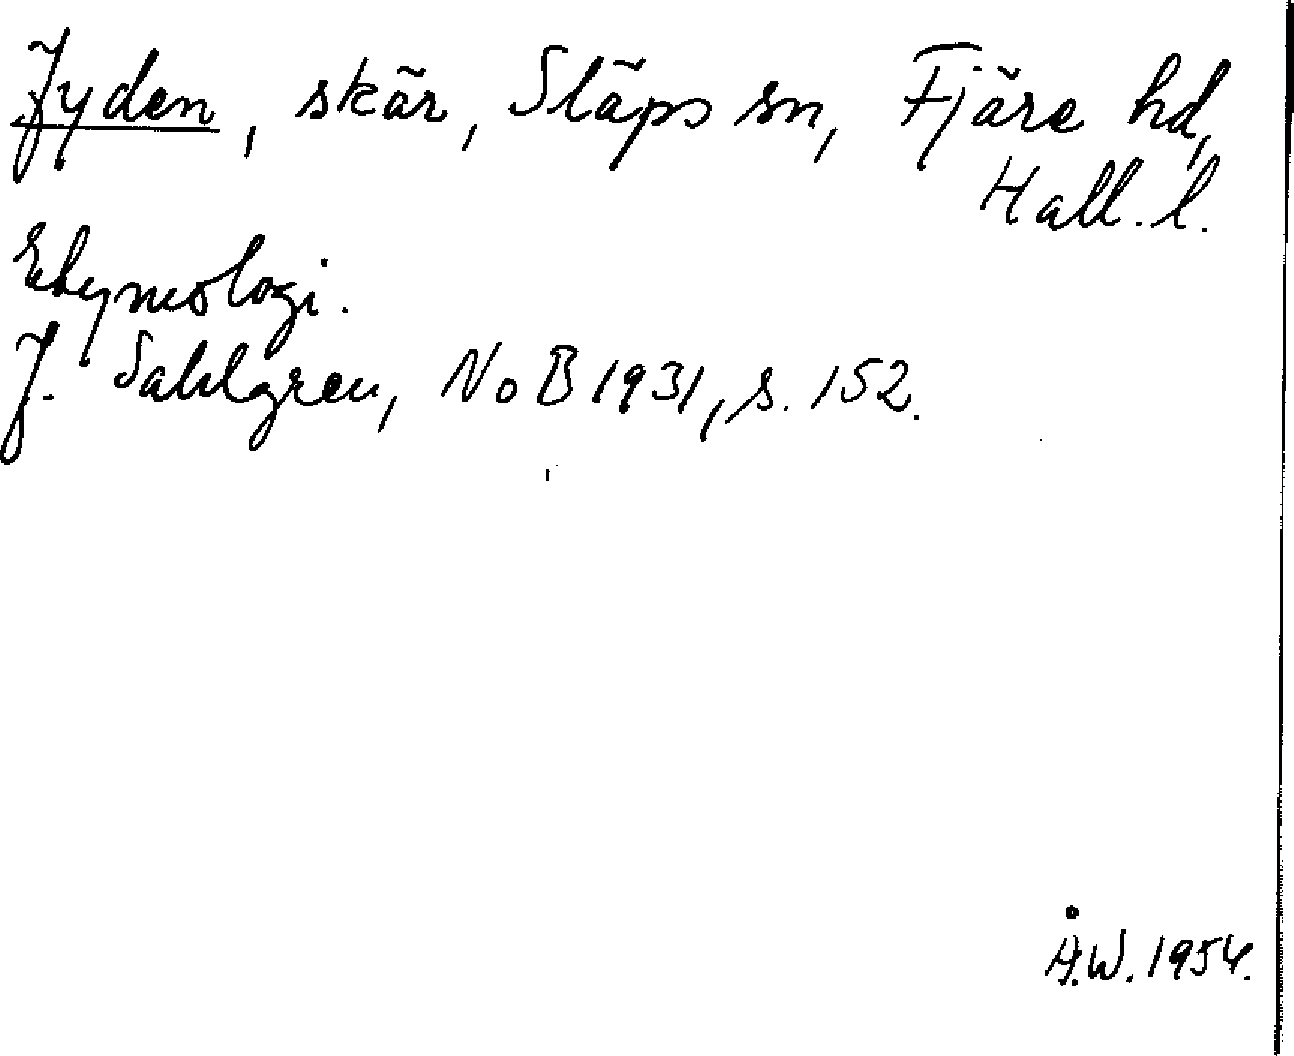 Jyden, skär, Släps sn, Fjäre hd,
Hall. l.
Etymologi.
J. Sahlgren, NoB 1931, s. 152.
Å.W. 1954.